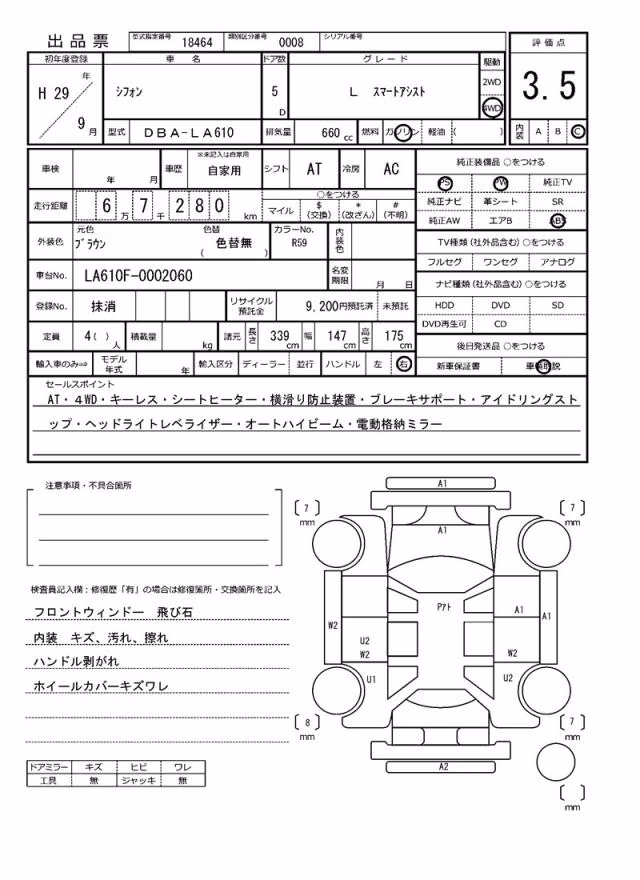 出品票 型式指定番号 18464 類別区分番号 0008 シリアル番号
評価点
3.5
内装 A B C
初年度登録 車名 ドア数 グレード 駆動
H 29 年 9 月
シフォン 5 D L スマートアシスト 2WD 4WD
型式 DBA-LA610 排気量 660 cc 燃料 ガソリン 軽油 ( )
車検 年 月 車歴 ※未記入は自家用 自家用 シフト AT 冷房 AC
走行距離 6 万 7 千 2 8 0 km
○をつける
マイル $ (交換) * (改ざん) # (不明)
外装色 元色 ブラウン 色替 ( 色替無 ) カラーNo. R59 内装色
車台No. LA610F-0002060 名変期限 月 日
登録No. 抹消 リサイクル預託金 9,200円預託済 未預託
定員 4( ) 人 積載量 kg 諸元 長さ 339 cm 幅 147 cm 高さ 175 cm
輸入車のみ⇒ モデル年式 年 輸入区分 ディーラー 並行 ハンドル 左 右
純正装備品 ○をつける
PS PW 純正TV
純正ナビ 革シート SR
純正AW エアB ABS
TV種類(社外品含む)○をつける
フルセグ ワンセグ アナログ
ナビ種類(社外品含む)○をつける
HDD DVD SD
DVD再生可 CD
後日発送品 ○をつける
新車保証書 車輌取説
セールスポイント
AT・4WD・キーレス・シートヒーター・横滑り防止装置・ブレーキサポート・アイドリングスト
ップ・ヘッドライトレベライザー・オートハイビーム・電動格納ミラー
注意事項・不具合箇所
検査員記入欄:修復歴「有」の場合は修復箇所・交換箇所を記入
フロントウィンドー 飛び石
内装 キズ、汚れ、擦れ
ハンドル剥がれ
ホイールカバーキズワレ
ドアミラー キズ ヒビ ワレ
工具 無 ジャッキ 無
A1
[7] mm [7] mm
A1
Pアト
A1 A1
W2
U2
W2 W2
U1 U2
[8] mm [7] mm
A2
[ ] mm